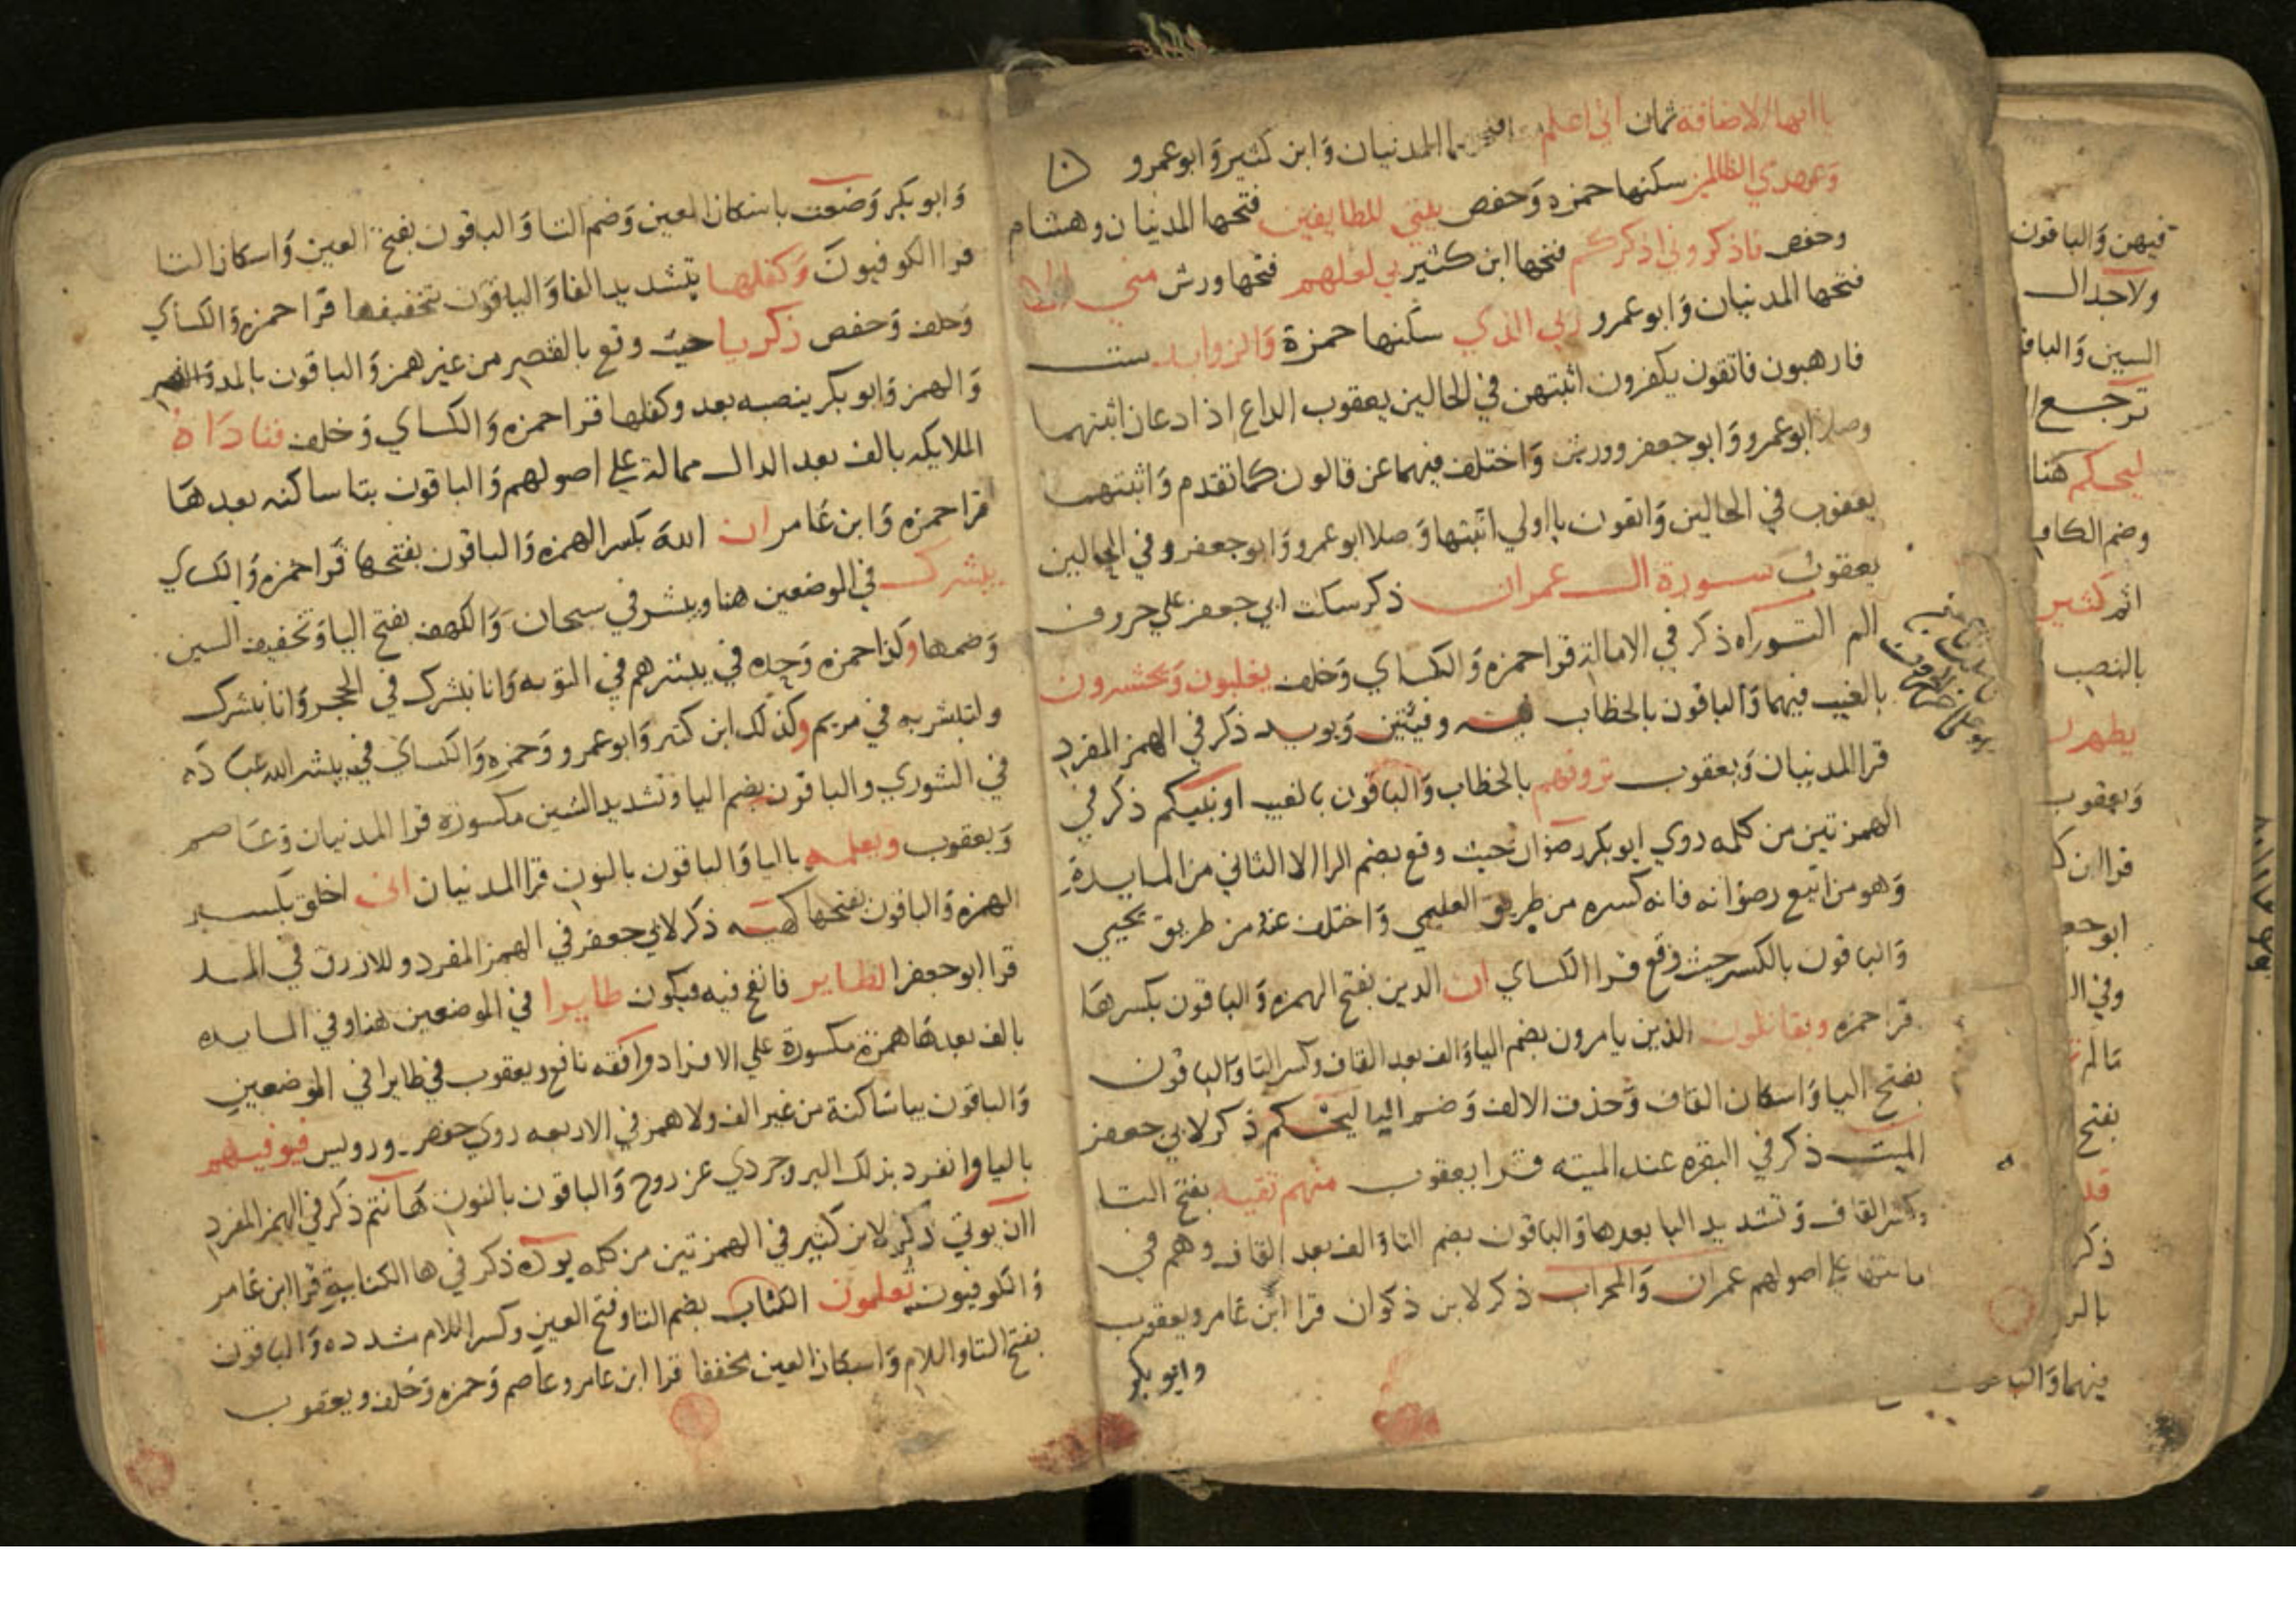 ياآتها الاضافة ثمان اني اعلم المدنيان وابن كثير وابو عمرو
وعهدي الظالمين سكنها حمزه وحفص بيتي للطايفين فتحها المدنيان وهشام
وحفص فاذكروني اذكركم فتحها ابن كثير بي لعلهم فتحها ورش مني الا
فتحها المدنيان وابو عمرو ربي الذي سكنها حمزة والزوايد ست
فارهبون فاتقون يكفرون اثبتهن في الحالين يعقوب الداع اذا دعان اثبتهما
وصلا ابو عمرو وابو جعفر وورش واختلف فيهما عن قالون كما تقدم واثبتهما
يعقوب في الحالين واتقون يا اولي اثبتها وصلا ابو عمرو وابو جعفر وفي الحالين
يعقوب سورة ال عمران ذكر سكت ابي جعفر علي حروف
الم التوراه ذكر في الامالة قرا حمزه والكساي وخلف يغلبون ويحشرون
بالغيب فيهما والباقون بالخطاب فيه وفيتين ويويد ذكر في الهمز المفرد
قرا المدنيان ويعقوب ترونهم بالخطاب والباقون بالغيب اونبيكم ذكر في
الهمزتين من كلمه روي ابو بكر رضوان حيث وقع بضم الرا الا الثاني من المايدة
وهو من اتبع رضوانه فانه كسره من طريق العليمي واختلف عنه من طريق يحيي
والباقون بالكسر حيث وقع قرا الكساي ان الدين بفتح الهمزه والباقون بكسرها
قرا حمزه ويقاتلون الذين يامرون بضم اليا والف بعد القاف وكسر التا والباقون
بفتح اليا واسكان القاف وحذف الالف وضم التا ليحكم ذكر لابي جعفر
الميت ذكر في البقره عند الميته قرا يعقوب منهم تقيه بفتح التا
وكسر القاف وتشديد اليا بعدها والباقون بضم التا والف بعد القاف وهم في
امالتها علي اصولهم عمران والمحراب ذكر لابن ذكوان قرا ابن عامر ويعقوب
وابو بكر
وابو بكر وضعت باسكان العين وضم التا والباقون بفتح العين واسكان التا
قرا الكوفيون وكفلها بتشديد الفا والباقون تخفيفها قرا حمزه والكساي
وخلف وحفص زكريا حيث وقع بالقصر من غير همز والباقون بالمد
والهمز وابو بكر ينصبه بعد وكفلها قرا حمزه والكساي وخلف فناداه
الملايكه بالف بعد الدال ممالة علي اصولهم والباقون بتا ساكنه بعدها
قرا حمزه وابن عامر ان الله بكسر الهمزه والباقون بفتحها قرا حمزه والكساي
يبشرك في الموضعين هنا ويبشر في سبحان والكهف بفتح اليا وتخفيف السين
وضمها وكذا حمزه وحده في يبشرهم في التوبه وانا نبشرك في الحجر وانا نبشرك
ولتبشر به في مريم وكذلك ابن كثير وابو عمرو وحمزه والكساي في يبشر الله عباده
في الشوري والباقون بضم اليا وتشديد الشين مكسوره قرا المدنيان وعاصم
ويعقوب ويعلمه باليا والباقون بالنون قرا المدنيان اني اخلق بكسر
الهمزه والباقون بفتحها كهيه ذكر لابي جعفر في الهمز المفرد وللازرق في المد
قرا ابو جعفر الطاير فانفخ فيه فيكون طايرا في الموضعين هنا وفي المايده
بالف بعدها همزة مكسورة علي الافراد وافقه نافع ويعقوب في طايرا في الموضعين
والباقون بيا ساكنة من غير الف ولا همز في الاربعه روي حفص ورويس فيوفيهم
باليا وانفرد بذلك البروجردي عن روح والباقون بالنون هاانتم ذكر في الهمز المفرد
اان يوتي ذكر لابن كثير في الهمزتين من كلمه يوده ذكر في ها الكناية قرا ابن عامر
والكوفيون تعلمون الكتاب بضم التا وفتح العين وكسر اللام مشدده والباقون
بفتح التا واللام واسكان العين مخففا قرا ابن عامر وعاصم وحمزه وخلف ويعقوب
فيهن والباقون
ولاجدال
السين والباقو
ترجع ا
ليحكم هنا
وضم الكاف
اثم كثير
بالنصب
يطهرن
ويعقوب
قرا ابن ك
ابو جعفر
وفي ال
مالم ت
بفتح
ذكر
فيهما والباقون